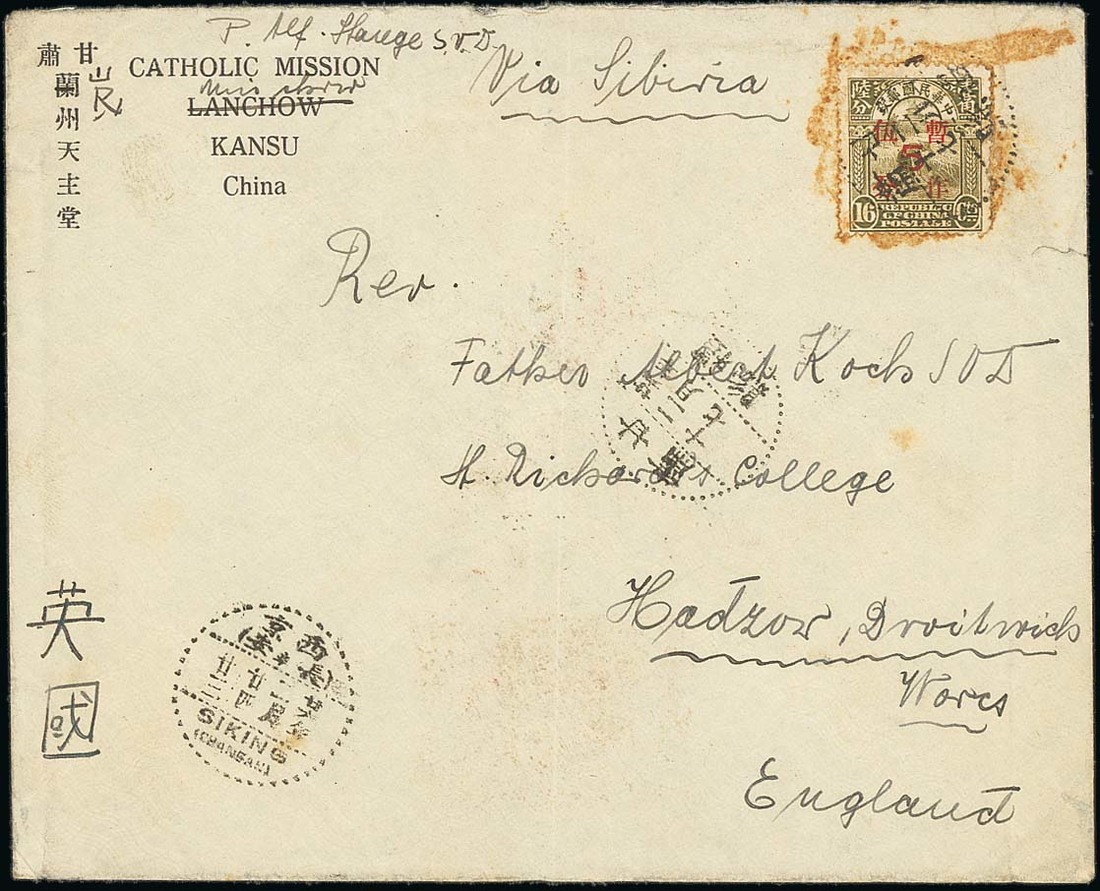 P. Alf. Stauge S.V.D.
CATHOLIC MISSION
LANCHOW
KANSU
China
甘肅
蘭州天主堂
岷
Via Sibiria
伍 暫
5
作
16 Cts
REPUBLIC
OF CHINA
POSTAGE
Rev.
Father Albert Koch SVD
St. Richard's College
Hadzor, Droitwich
Worcs
England
英國
西京
(長安)
SIKING
(CHANGAN)